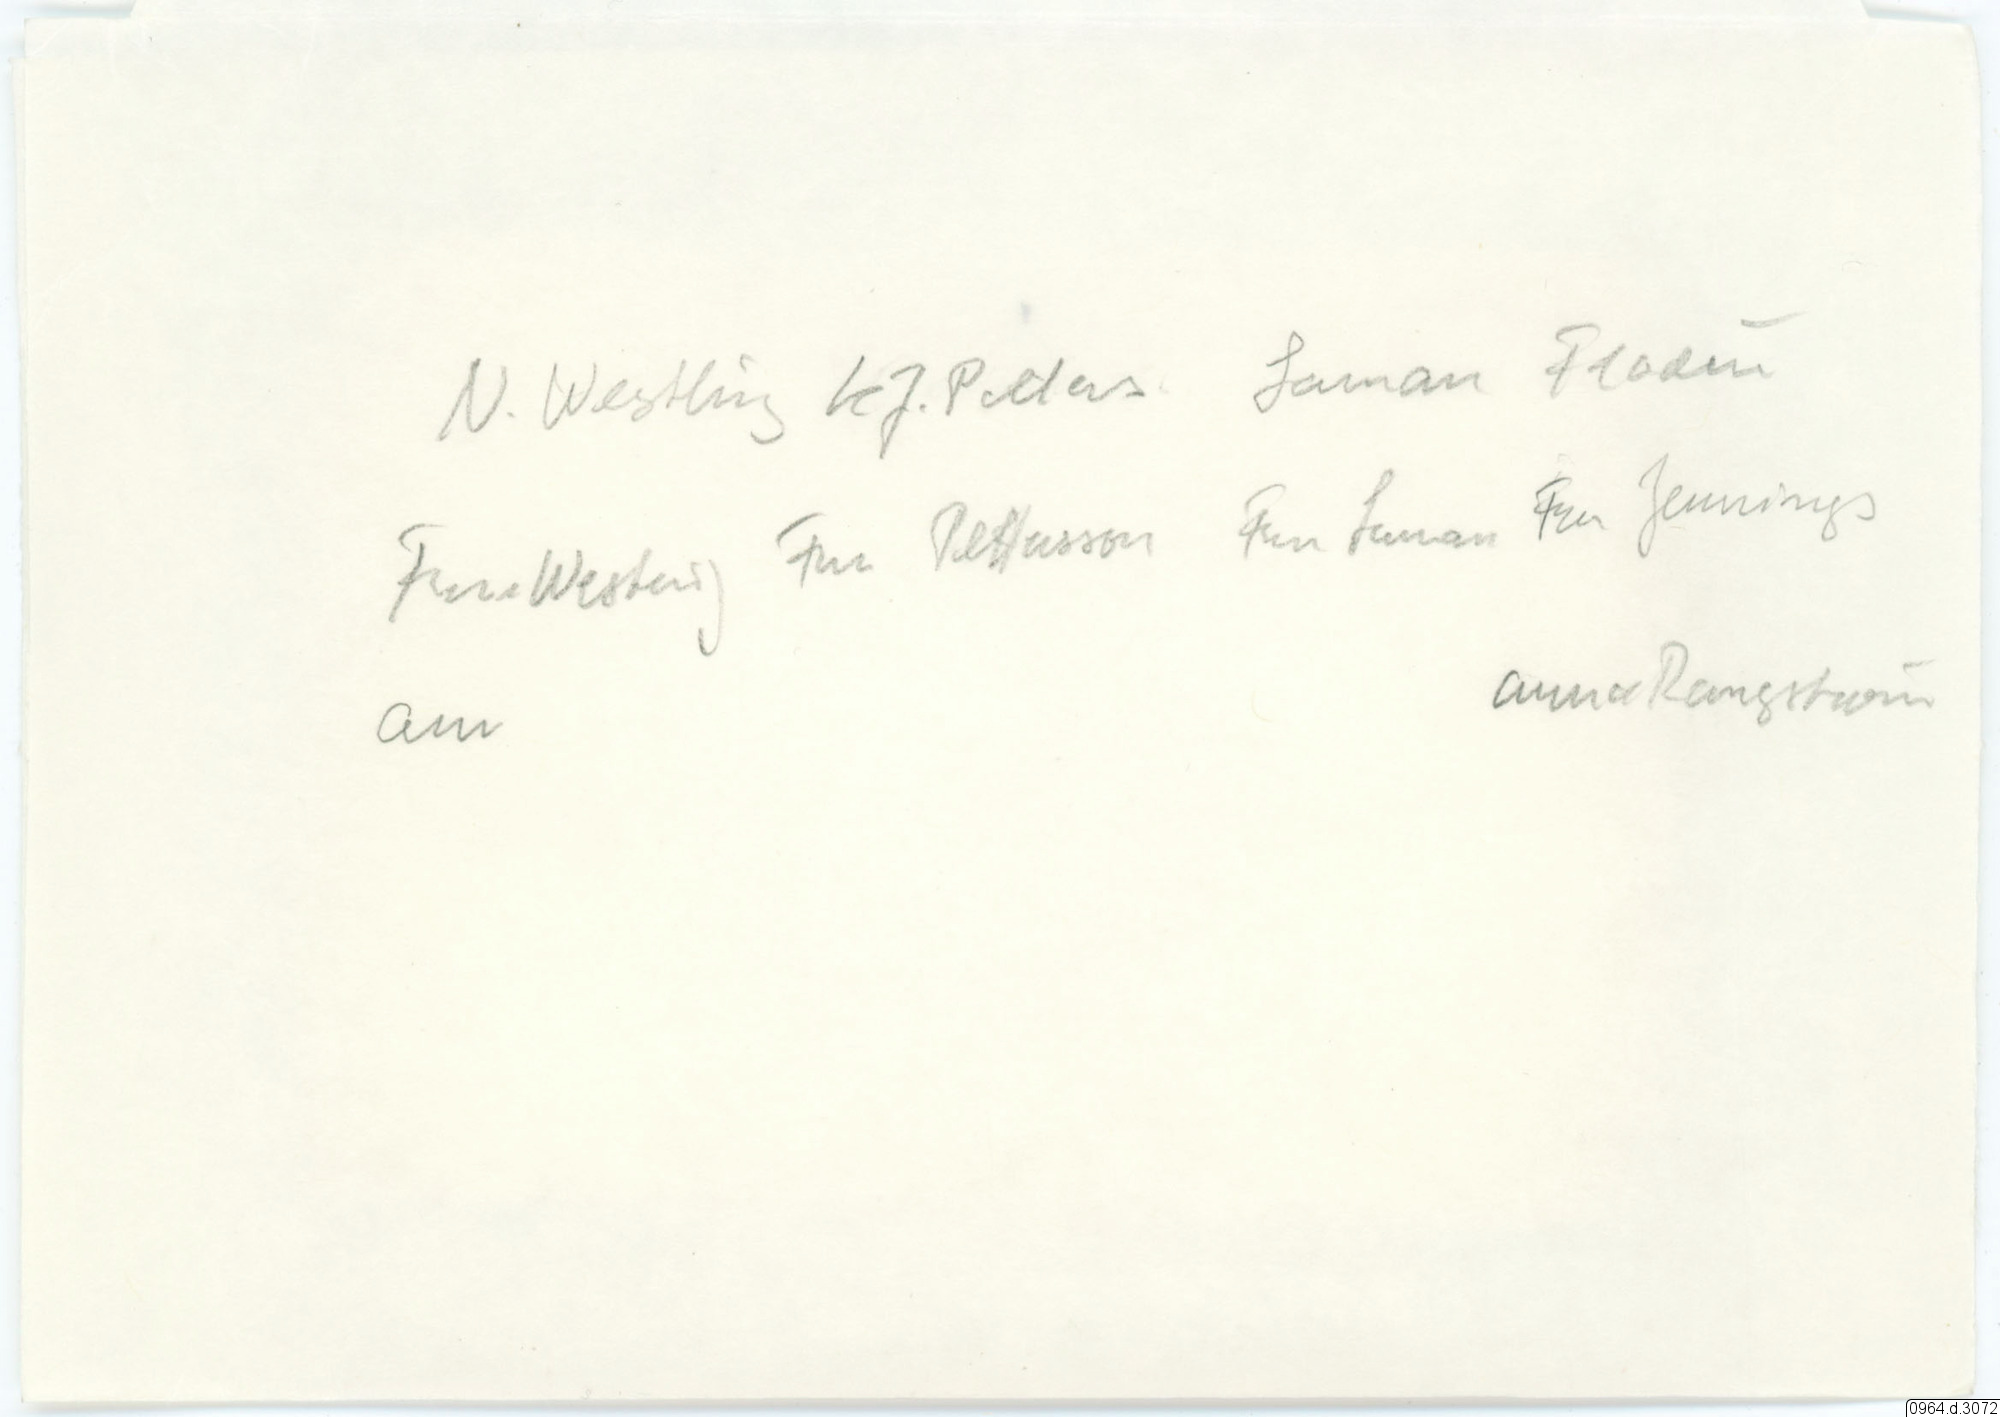 N. Westling K J. Petters. Laman Flodin
Fru Westling Fru Pettersson Fru Laman Fru Jennings
Ann Anna Rangström
0964.d.3072